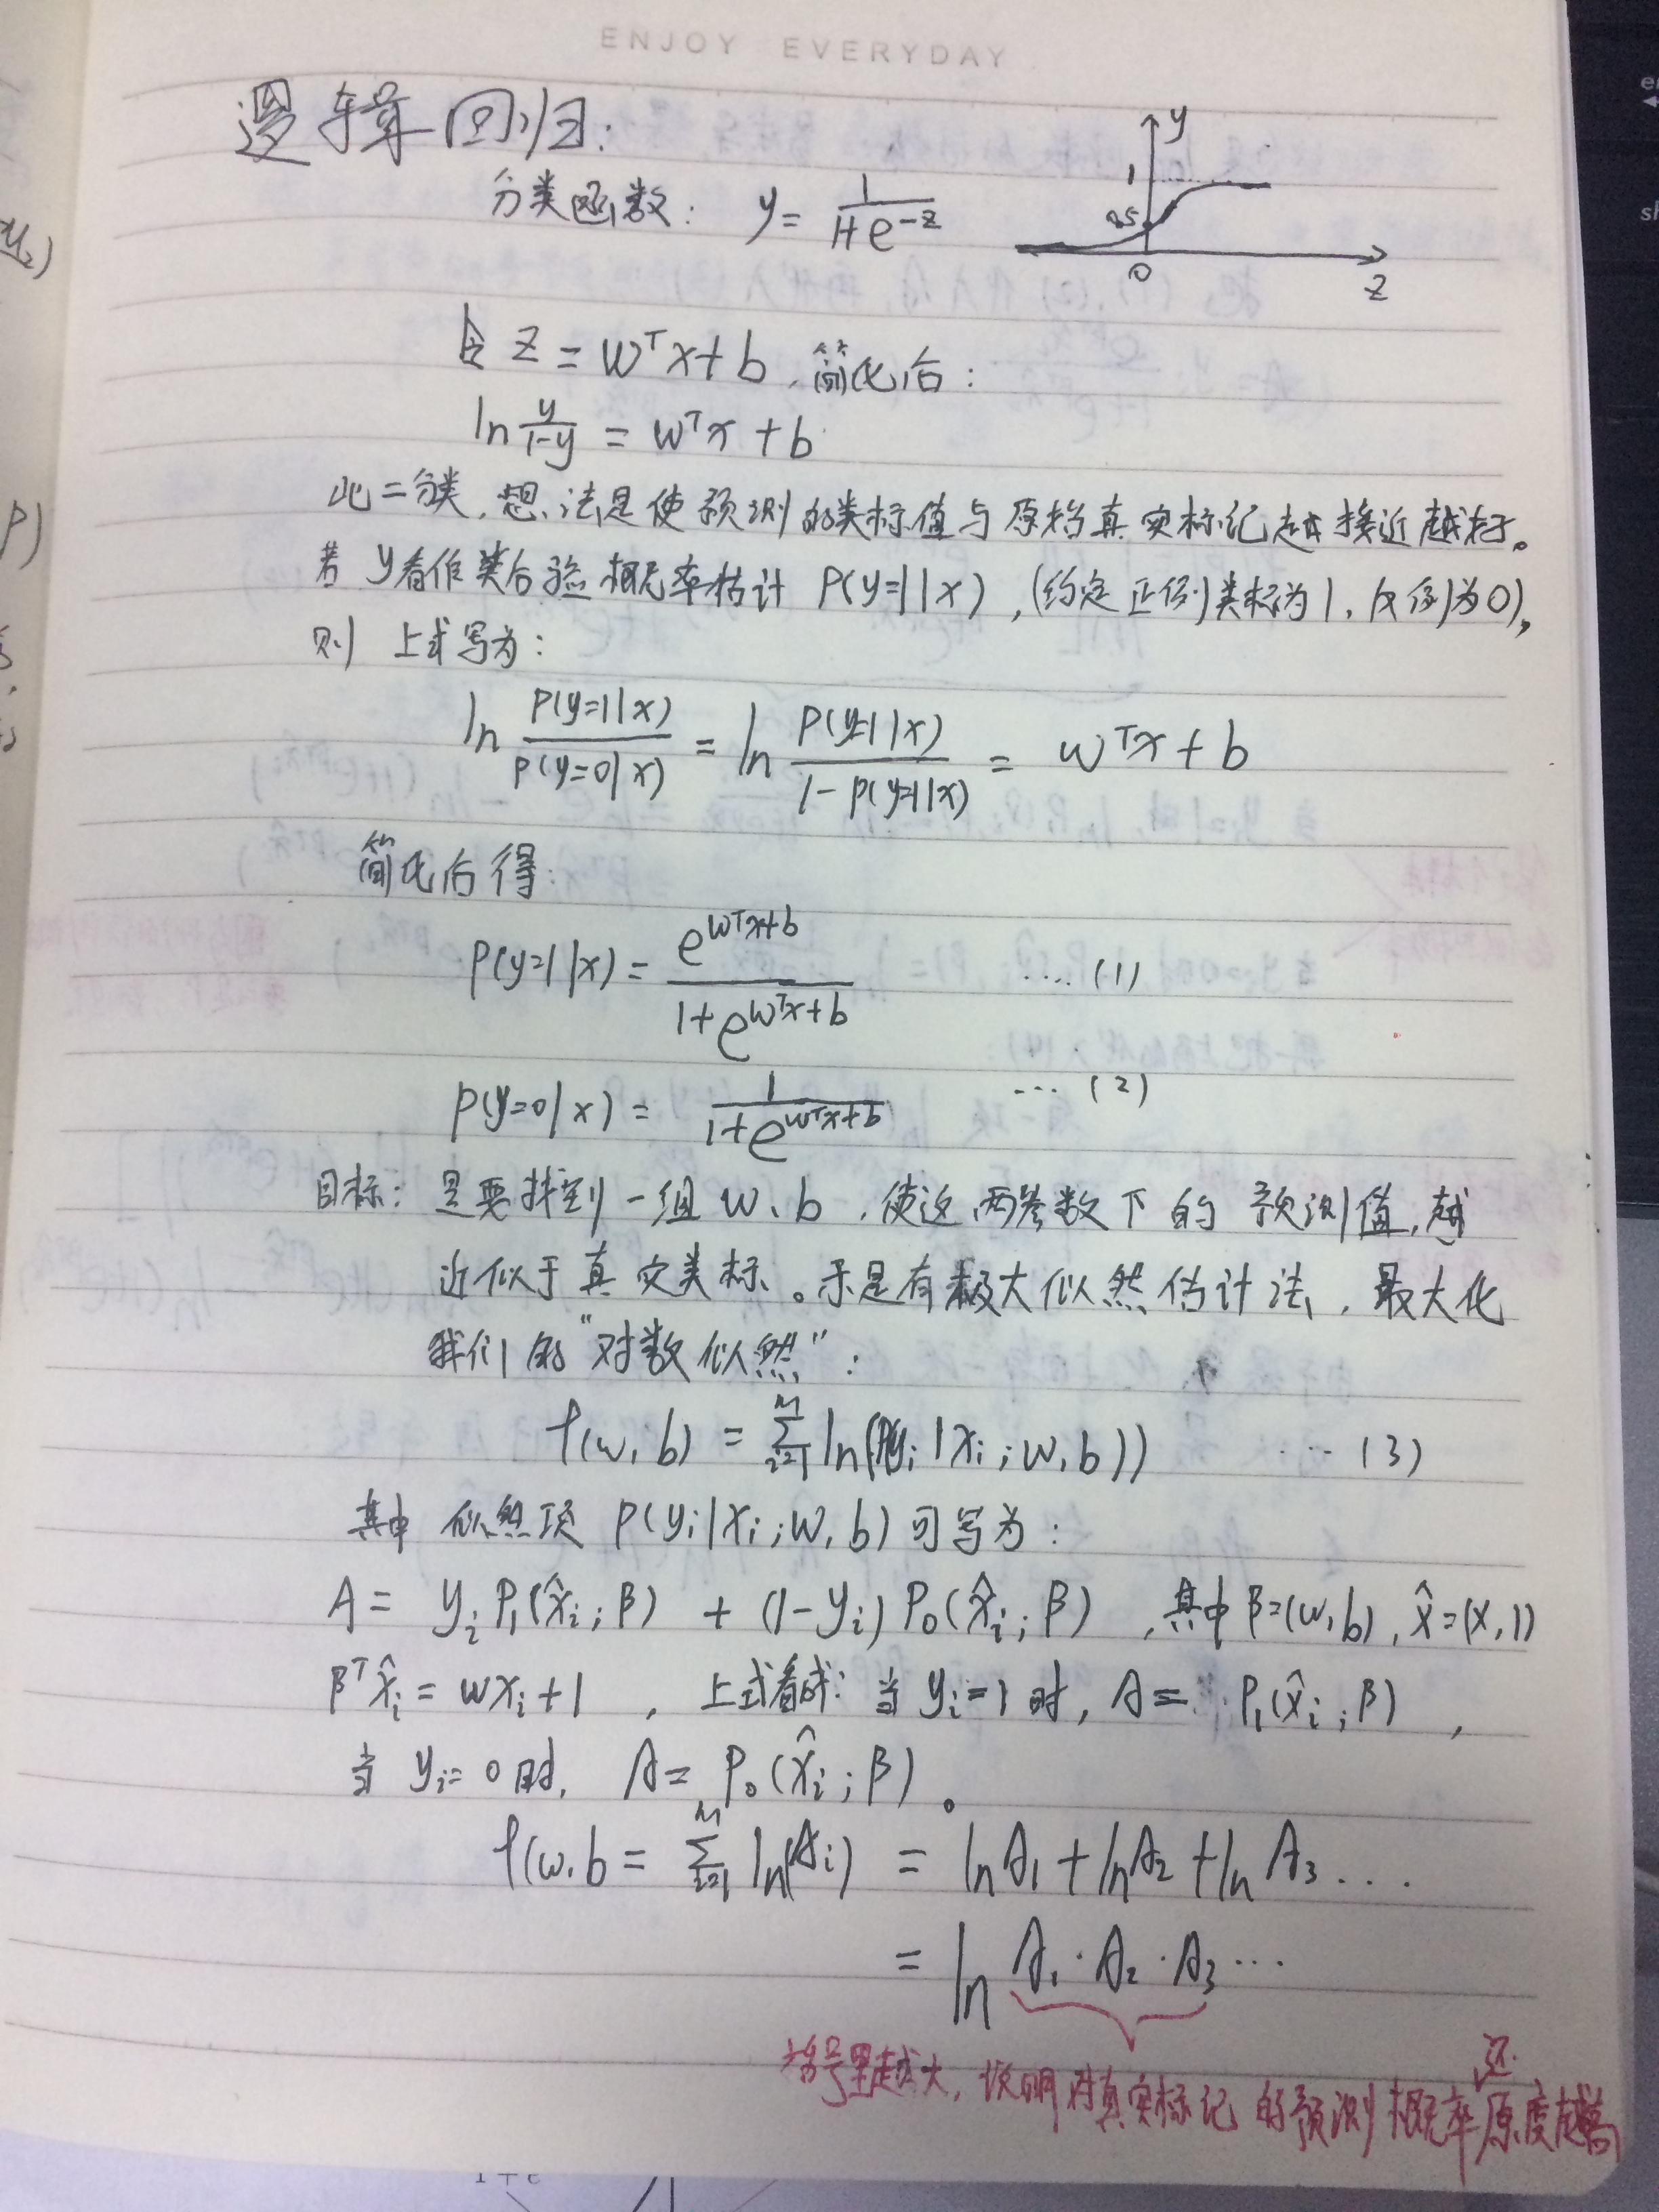 ENJOY EVERYDAY
逻辑回归:
分类函数: y = 1/(1+e^{-z})
y
1
0.5
0
z
令 z = w^T x + b, 简化后:
ln y/(1-y) = w^T x + b
此二分类,想法是使预测的类标值与原始真实标记越接近越好。
若 y看作类后验概率估计 P(y=1|x), (约定正例类标为1, 反例为0),
则 上式写为:
ln P(y=1|x)/P(y=0|x) = ln P(y=1|x)/(1-P(y=1|x)) = w^T x + b
简化后得:
P(y=1|x) = e^{w^T x+b}/(1+e^{w^T x+b}) ….(1)
P(y=0|x) = 1/(1+e^{w^T x+b}) …(2)
目标: 是要找到一组 w、b,使这两参数下的 预测值,越
近似于真实类标。于是有极大似然估计法,最大化
我们的“对数似然”:
f(w,b) = ∑_{i=1}^{m} ln(P(y_i|x_i;w,b)) …(3)
其中 似然项 P(y_i|x_i;w,b) 可写为:
A = y_i P_1(x̂_i;β) + (1-y_i) P_0(x̂_i;β) ,其中β=(w,b), x̂=(x,1)
β^T x̂_i = wx_i+1 , 上式看成: 当 y_i=1 时, A = P_1(x̂_i;β) ,
当 y_i=0时, A= P_0(x̂_i;β)。
f(w,b = ∑_{i=1}^{m} ln(A_i) = ln A_1 + ln A_2 + ln A_3 ...
= ln A_1·A_2·A_3 ...
还
括号里越大,说明对真实标记的预测概率原度越高